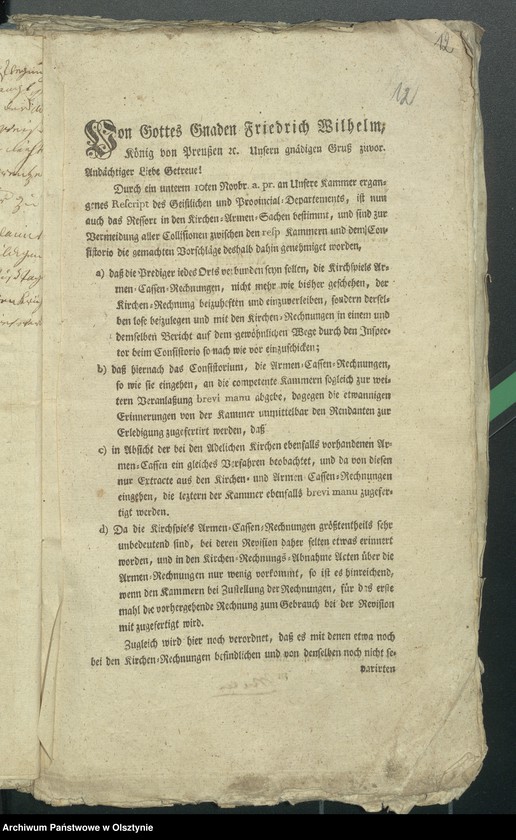 12
12
Von Gottes Gnaden Friedrich Wilhelm,
König von Preußen ꝛc. Unsern gnädigen Gruß zuvor.
Andächtiger Liebe Getreue!
Durch ein unterm 10ten Novbr. a. pr. an Unsere Kammer ergan-
genes Rescript des Geistlichen und Provincial-Departements, ist nun
auch das Ressort in den Kirchen-Armen-Sachen bestimmt, und sind zur
Vermeidung aller Collisionen zwischen den resp Kammern und dem Con-
sistorio die gemachten Vorschläge deshalb dahin genehmiget worden,
a) daß die Prediger jedes Orts verbunden seyn sollen, die Kirchspiels Ar-
men-Cassen-Rechnungen, nicht mehr wie bisher geschehen, der
Kirchen-Rechnung beizuheften und einzuverleiben, sondern dersel-
ben lose beizulegen und mit den Kirchen-Rechnungen in einem und
demselben Bericht auf dem gewöhnlichen Wege durch den Inspec-
tor beim Consistorio so nach wie vor einzuschicken;
b) daß hiernach das Consistorium, die Armen-Cassen-Rechnungen,
so wie sie eingehen, an die competente Kammern sogleich zur wei-
tern Veranlaßung brevi manu abgebe, dogegen die etwannigen
Erinnerungen von der Kammer unmittelbar den Rendanten zur
Erledigung zugefertirt werden, daß
c) in Absicht der bei den Adelichen Kirchen ebenfalls vorhandenen Ar-
men-Cassen ein gleiches Verfahren beobachtet, und da von diesen
nur Extracte aus den Kirchen- und Armen-Cassen-Rechnungen
eingehen, die leztern der Kammer ebenfalls brevi manu zugefer-
tigt werden.
d) Da die Kirchspiels Armen-Cassen-Rechnungen größtentheils sehr
unbedeutend sind, bei deren Revision daher selten etwas erinnert
worden, und in den Kirchen-Rechnungs-Abnahme Acten über die
Armen-Rechnungen nur wenig vorkommt, so ist es hinreichend,
wenn den Kammern bei Zustellung der Rechnungen, für das erste
mahl die vorhergehende Rechnung zum Gebrauch bei der Revision
mit zugefertigt wird.
Zugleich wird hier noch verordnet, daß es mit denen etwa noch
bei den Kirchen-Rechnungen befindlichen und von denselben noch nicht se-
parirten
Archiwum Państwowe w Olsztynie